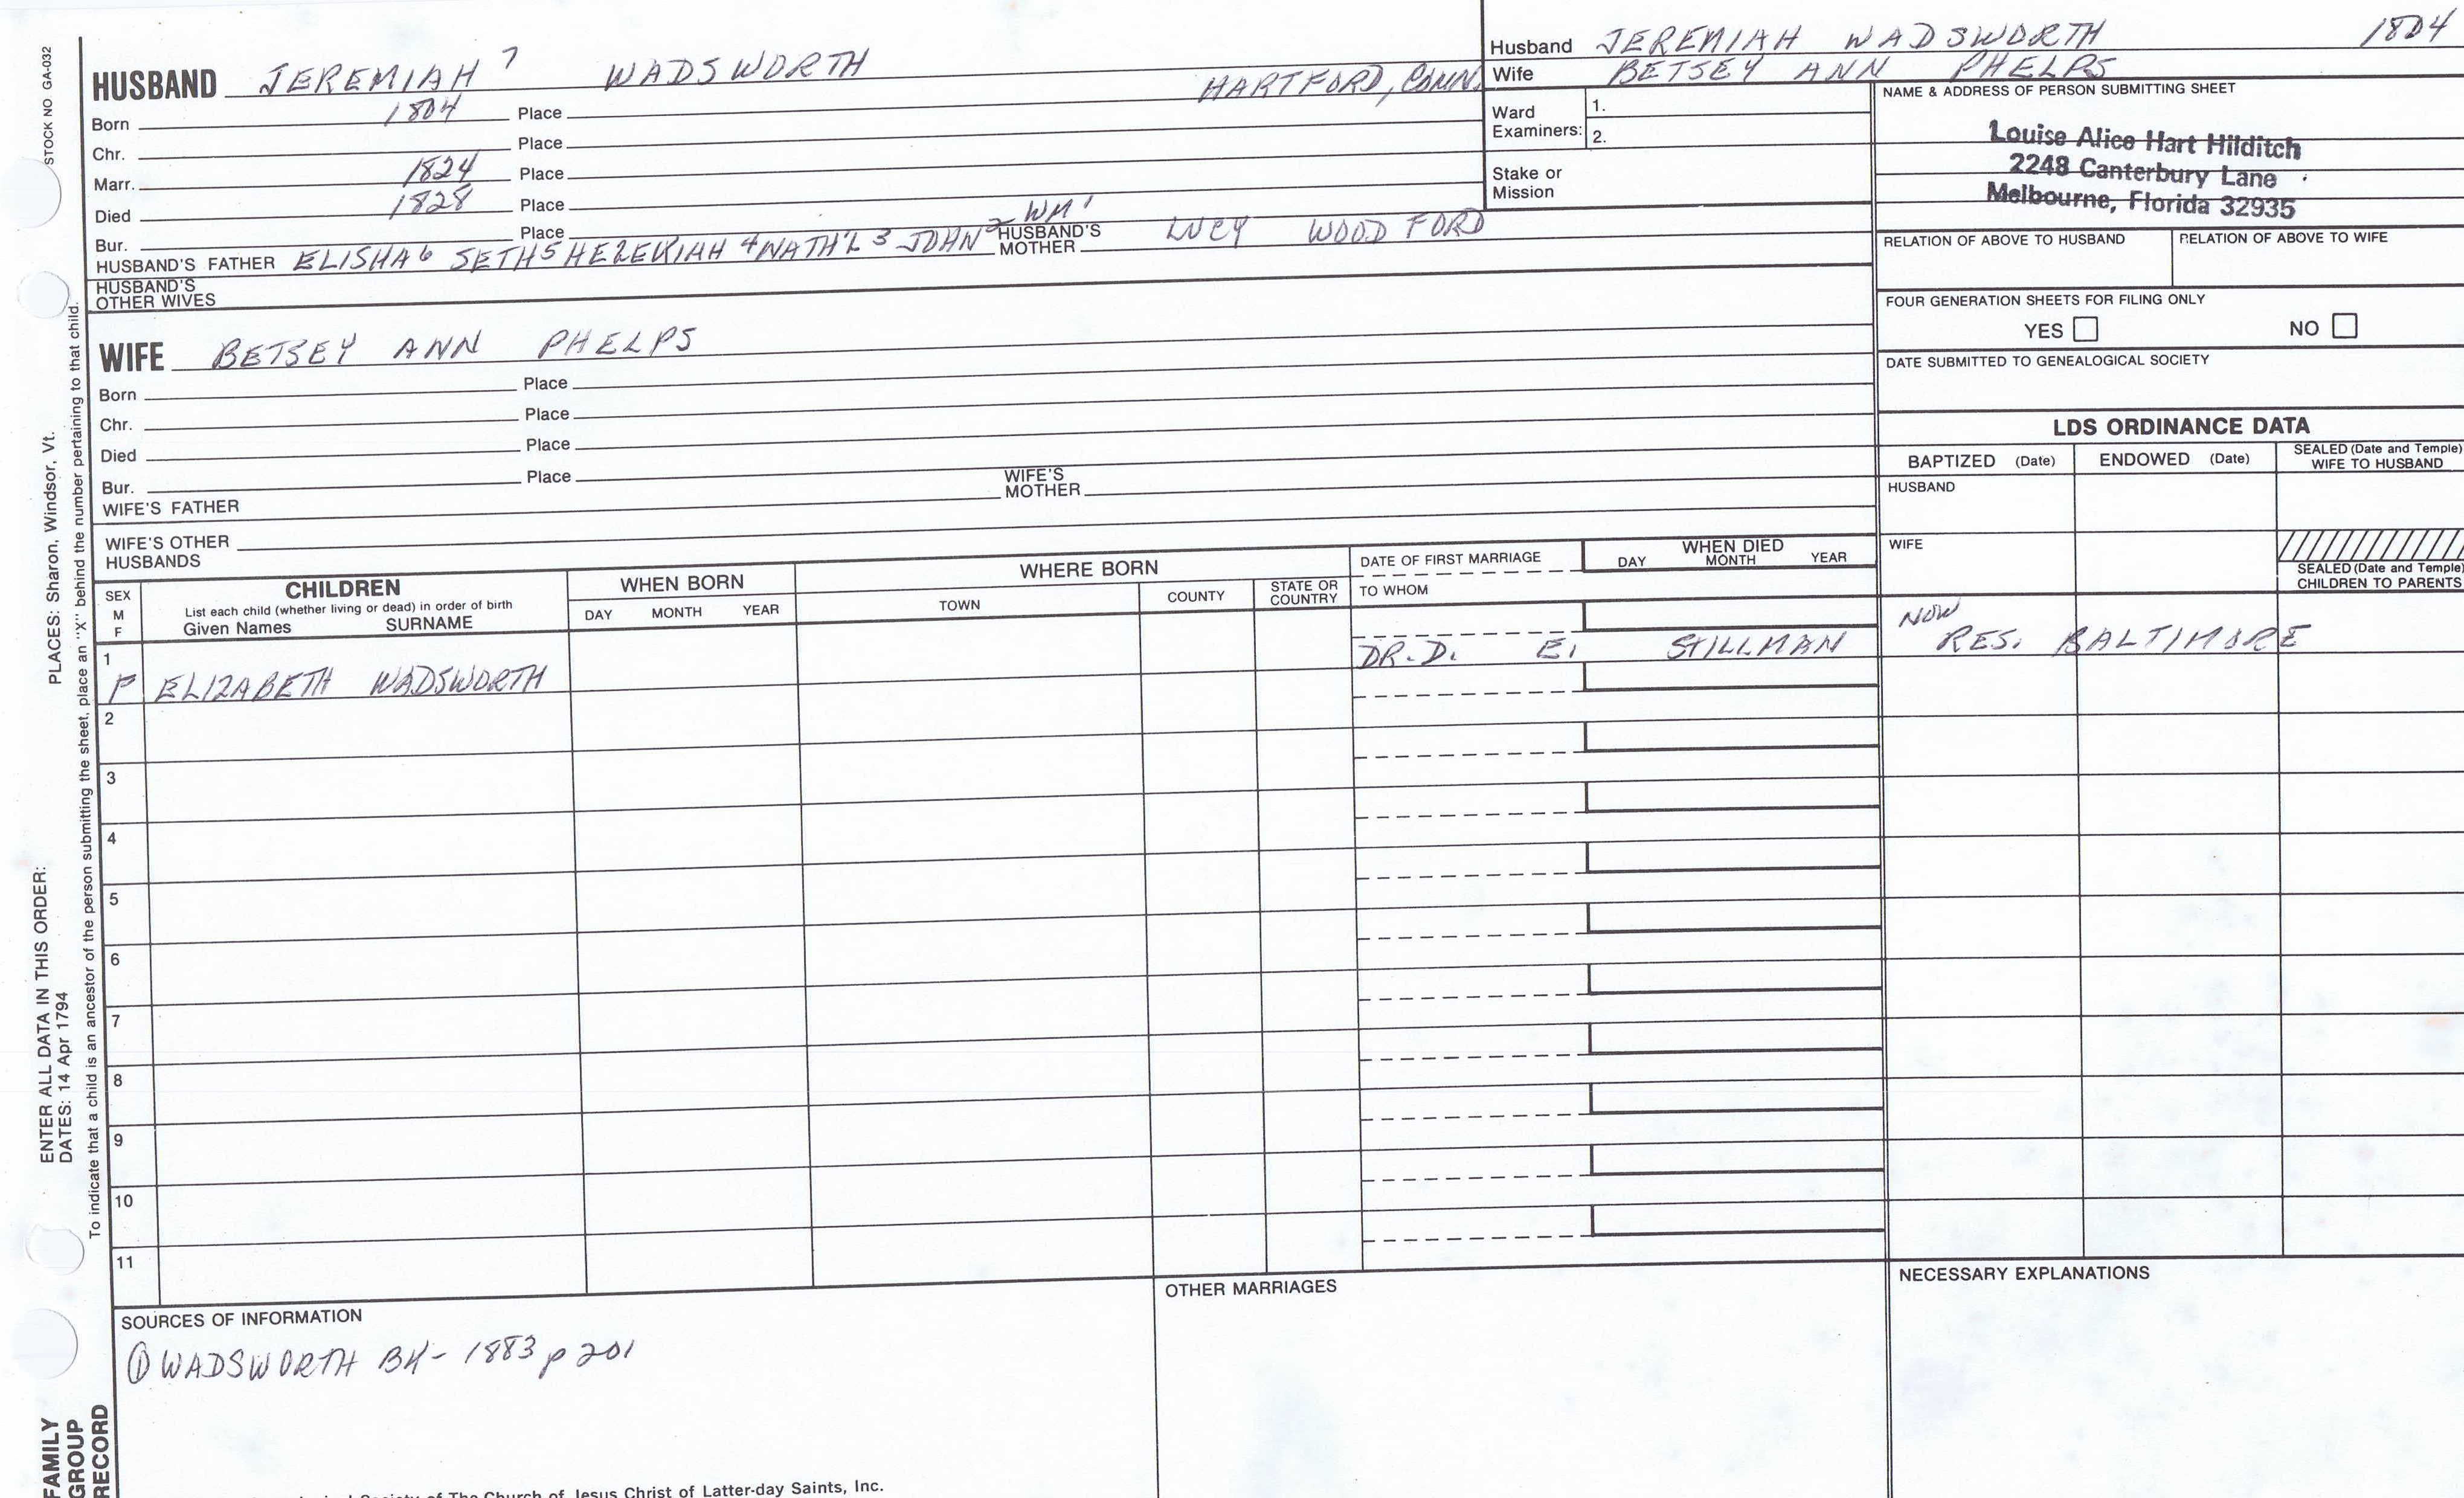 HUSBAND JEREMIAH 7 WADSWORTH
Born 1804 Place HARTFORD, CONN.
Chr. Place
Marr. 1824 Place
Died 1828 Place
Bur. Place
HUSBAND'S FATHER ELISHA 6 SETH 5 HEZEKIAH 4 NATH'L 3 JOHN 2 WM 1 HUSBAND'S MOTHER LUCY WOODFORD
HUSBAND'S OTHER WIVES
WIFE BETSEY ANN PHELPS
Born Place
Chr. Place
Died Place
Bur. Place
WIFE'S FATHER WIFE'S MOTHER
WIFE'S OTHER HUSBANDS
Husband JEREMIAH WADSWORTH 1804
Wife BETSEY ANN PHELPS
Ward Examiners: 1.
2.
Stake or Mission
NAME & ADDRESS OF PERSON SUBMITTING SHEET
Louise Alice Hart Hilditch
2248 Canterbury Lane
Melbourne, Florida 32935
RELATION OF ABOVE TO HUSBAND RELATION OF ABOVE TO WIFE
FOUR GENERATION SHEETS FOR FILING ONLY
YES NO
DATE SUBMITTED TO GENEALOGICAL SOCIETY
LDS ORDINANCE DATA
BAPTIZED (Date) ENDOWED (Date) SEALED (Date and Temple) WIFE TO HUSBAND
HUSBAND
WIFE
SEALED (Date and Temple) CHILDREN TO PARENTS
SEX M F
CHILDREN
List each child (whether living or dead) in order of birth
Given Names SURNAME
WHEN BORN
DAY MONTH YEAR
WHERE BORN
TOWN COUNTY STATE OR COUNTRY
DATE OF FIRST MARRIAGE
TO WHOM
WHEN DIED
DAY MONTH YEAR
1
F ELIZABETH WADSWORTH DR. D. E. STILLMAN NOW RES. BALTIMORE
2
3
4
5
6
7
8
9
10
11
SOURCES OF INFORMATION
① WADSWORTH BK - 1883 p 201
OTHER MARRIAGES
NECESSARY EXPLANATIONS
Society of The Church of Jesus Christ of Latter-day Saints, Inc.
STOCK NO GA-032
PLACES: Sharon, Windsor, Vt.
ENTER ALL DATA IN THIS ORDER:
DATES: 14 Apr 1794
To indicate that a child is an ancestor of the person submitting the sheet, place an "X" behind the number pertaining to that child.
FAMILY
GROUP
RECORD